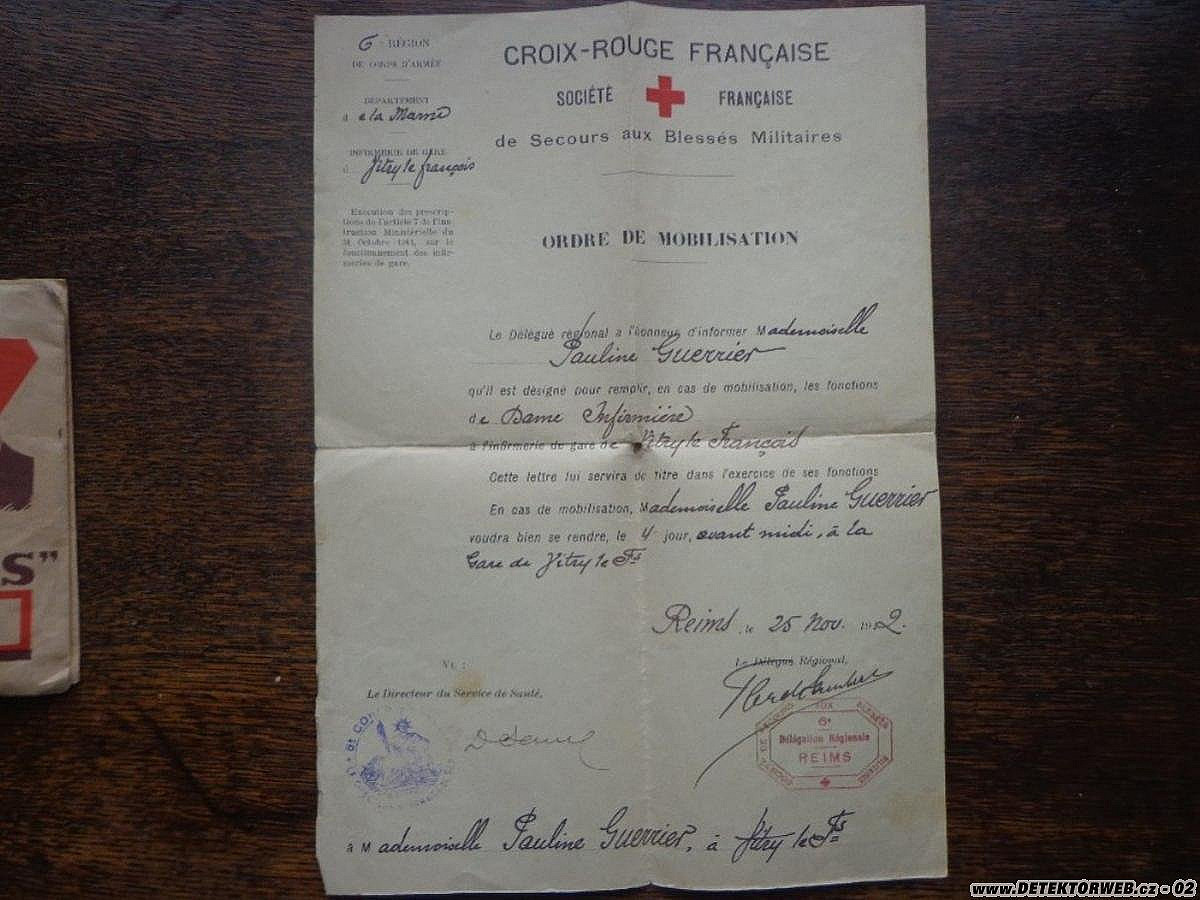 6e RÉGION
DE CORPS D'ARMÉE
DÉPARTEMENT
de la Marne
INFIRMERIE DE GARE
d Vitry le françois
Exécution des prescrip-
tions de l'article 7 de l'Ins-
truction Ministérielle du
31 Octobre 1911, sur le
fonctionnement des infir-
meries de gare.
CROIX-ROUGE FRANÇAISE
SOCIÉTÉ FRANÇAISE
de Secours aux Blessés Militaires
ORDRE DE MOBILISATION
Le Délégué régional a l'honneur d'informer Mademoiselle
Pauline Guerrier
qu'il est désigné pour remplir, en cas de mobilisation, les fonctions
de Dame Infirmière
à l'infirmerie de gare de Vitry le François
Cette lettre lui servira de titre dans l'exercice de ses fonctions
En cas de mobilisation, Mademoiselle Pauline Guerrier
voudra bien se rendre, le 4e jour, avant midi, à la
Gare de Vitry le Fs
Reims, le 25 Nov. 1912.
Vu :
Le Directeur du Service de Santé,
Le Délégué Régional,
SOCIÉTÉ DE SECOURS AUX BLESSÉS MILITAIRES
6e
Délégation Régionale
REIMS
à Mademoiselle Pauline Guerrier, à Vitry le Fs
S"
www.DETEKTORWEB.cz - 02